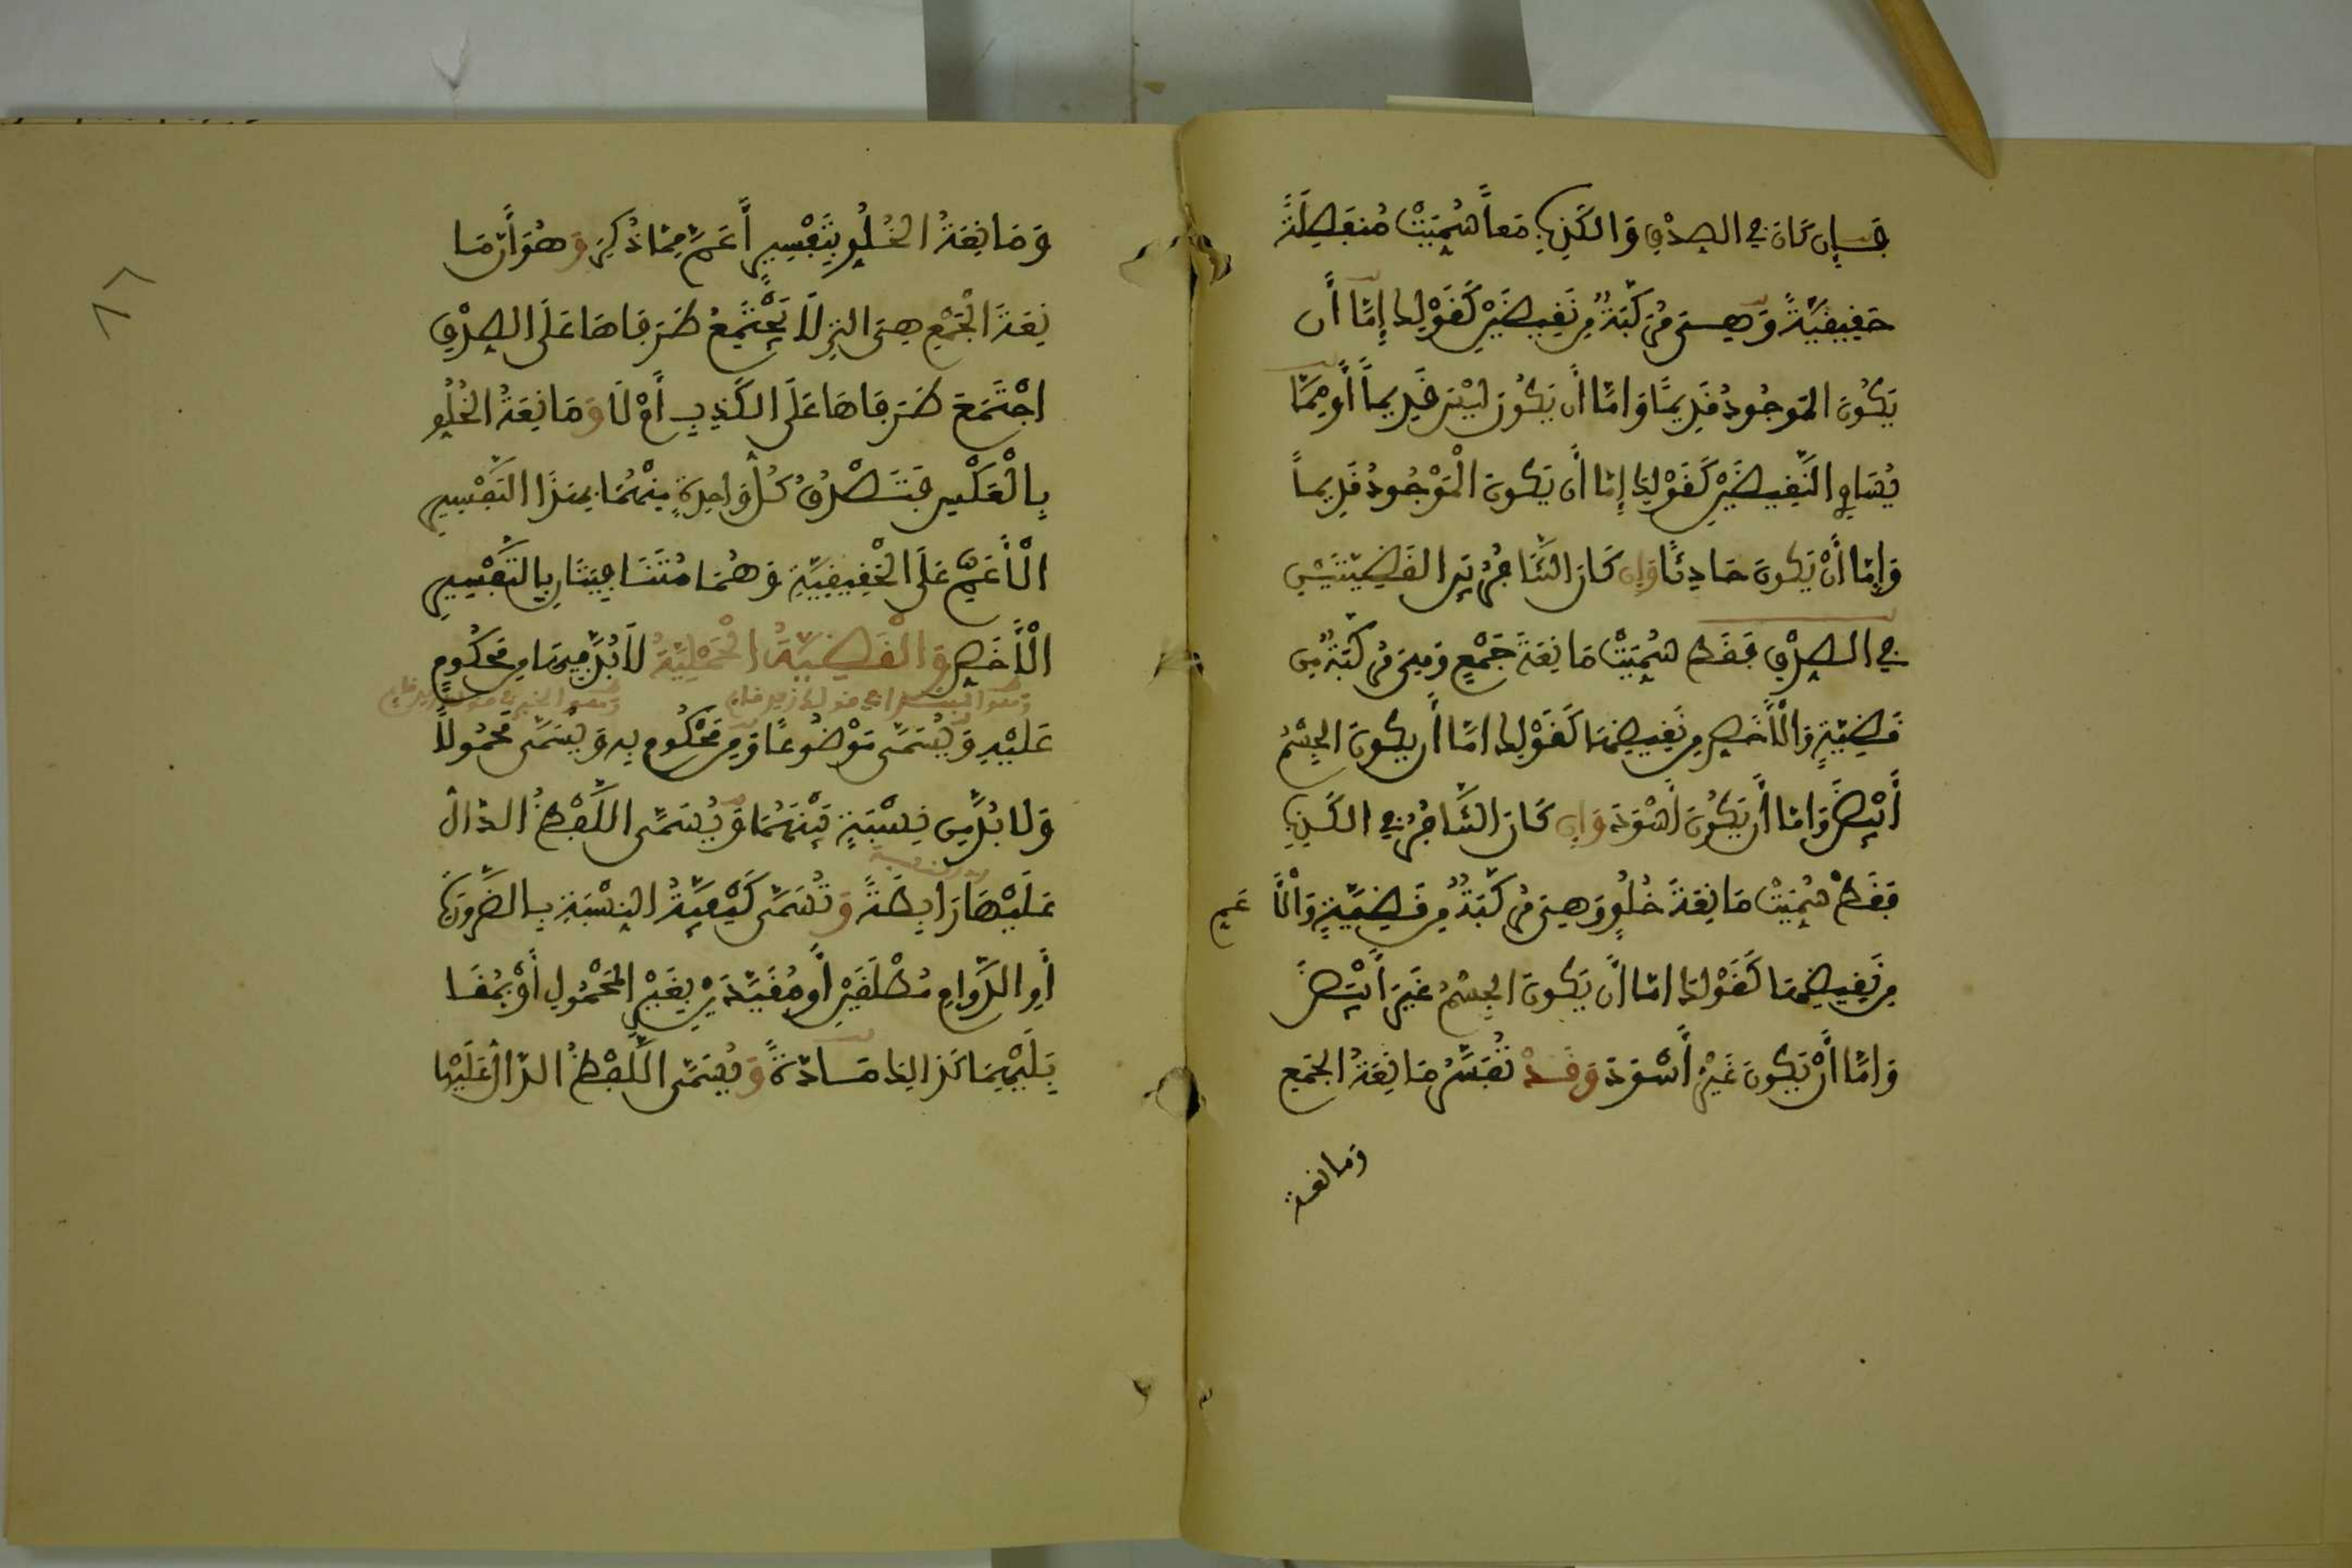 فإن كان في الصدق والكذب معاً سُمِّيَتْ مُنفَصِلَةً
حَقِيقِيَّةً وَهِيَ مُرَكَّبَةٌ مِن نَقِيضَيْنِ كَقَوْلِنا إِمَّا أَن
يَكُونَ المَوجُودُ قَدِيمًا وَامَّا أَن يَكُونَ لَيْسَ قَدِيماً أَو مِمَّا
يُسَاوِي النَّقِيضَيْنِ كَقَوْلِنَا إِمَّا أَن يَكُونَ الْمَوْجُودُ قَدِيماً
وَإِمَّا أَنْ يَكُونَ حَادِثًا وَإِن كَانَ التَّنَافُرُ بَيْنَ القَضِيَّتَيْنِ
فِي الصِدْقِ فَقَطْ سُمِّيَتْ مَانِعَةَ جَمْعٍ وَهِيَ مُرَكَّبَةٌ مِن
قَضِيَّةٍ وَالْأَخَصِّ مِن نَقِيضِهَا كَقَوْلِنَا امَّا أَن يَكُونَ الجِسْمُ
أَبْيَضَ وَإمَّا أَن يَكُونَ أَسْوَدَ وَإِن كَانَ التَّنَافُرُ فِي الكَذِبِ
فَقَطْ سُمِّيَتْ مَانِعَةَ خُلُوٍّ وَهِيَ مُرَكَّبَةٌ مِن قَضِيَّةٍ وَالْأَعَمِّ
مِن نَقِيضِهَا كَقَوْلِنَا امَّا أَن يَكُونَ الجِسْمُ غَيْرَ أَبْيَضَ
وَامَّا أَنْ يَكُونَ غَيْرَ أَسْوَدَ وَقَدْ تُفَسَّرُ مَانِعَةُ الجَمْعِ
ومانعة
وَمَانِعَةُ الخُلُوِّ بِتَفْسِيرٍ أَعَمَّ مِمَّا ذُكِرَ وَهُوَ أَنَّ مَا
نِعَةَ الْجَمْعِ هِيَ التِي لَا يَجْتَمِعُ طَرَفَاهَا عَلَى الصِدْقِ
اجْتَمَعَ طَرَفَاهَا عَلَى الكَذِبِ أَوْ لَا وَمَانِعَةُ الخُلُوِّ
بِالْعَكْسِ فَتَصْدُقُ كُلُّ وَاحِدَةٍ مِنْهُمَا بِهَذَا التَّفْسِيرِ
الْأَعَمِّ عَلَى الْحَقِيقِيَّةِ وَهُمَا مُتَنَافِيَتَانِ بِالتَّفْسِيرِ
الْأَخَصِّ وَالْقَضِيَّةُ الْحَمْلِيَّةُ لَا بُدَّ فِيهَا مِن مَحْكُومٍ
عَلَيْهِ وَيُسَمَّى مَوْضُوعًا وَمِن مَحْكُومٍ بِهِ وَيُسَمَّى مَحْمُولًا
وَلَا بُدَّ مِن نِسْبَةٍ بَيْنَهُمَا وَيُسَمَّى اللَّفْظُ الدَّالُ
عَلَيْهَا رَابِطَةً وَتُسَمَّى كَيْفِيَّةُ النِسْبَةِ بِالضَّرُورَةِ
أَوِ الدَّوَامِ مُطْلَقَيْنِ أَو مُقَيَّدَيْنِ بِغَيْرِ المَحْمُولِ أَوْ بِمُقَا
بِلَيْهِمَا كَذَالِكَ مَادَّةً وَيُسَمَّى اللَّفْظُ الدَّالُ عَلَيْهَا